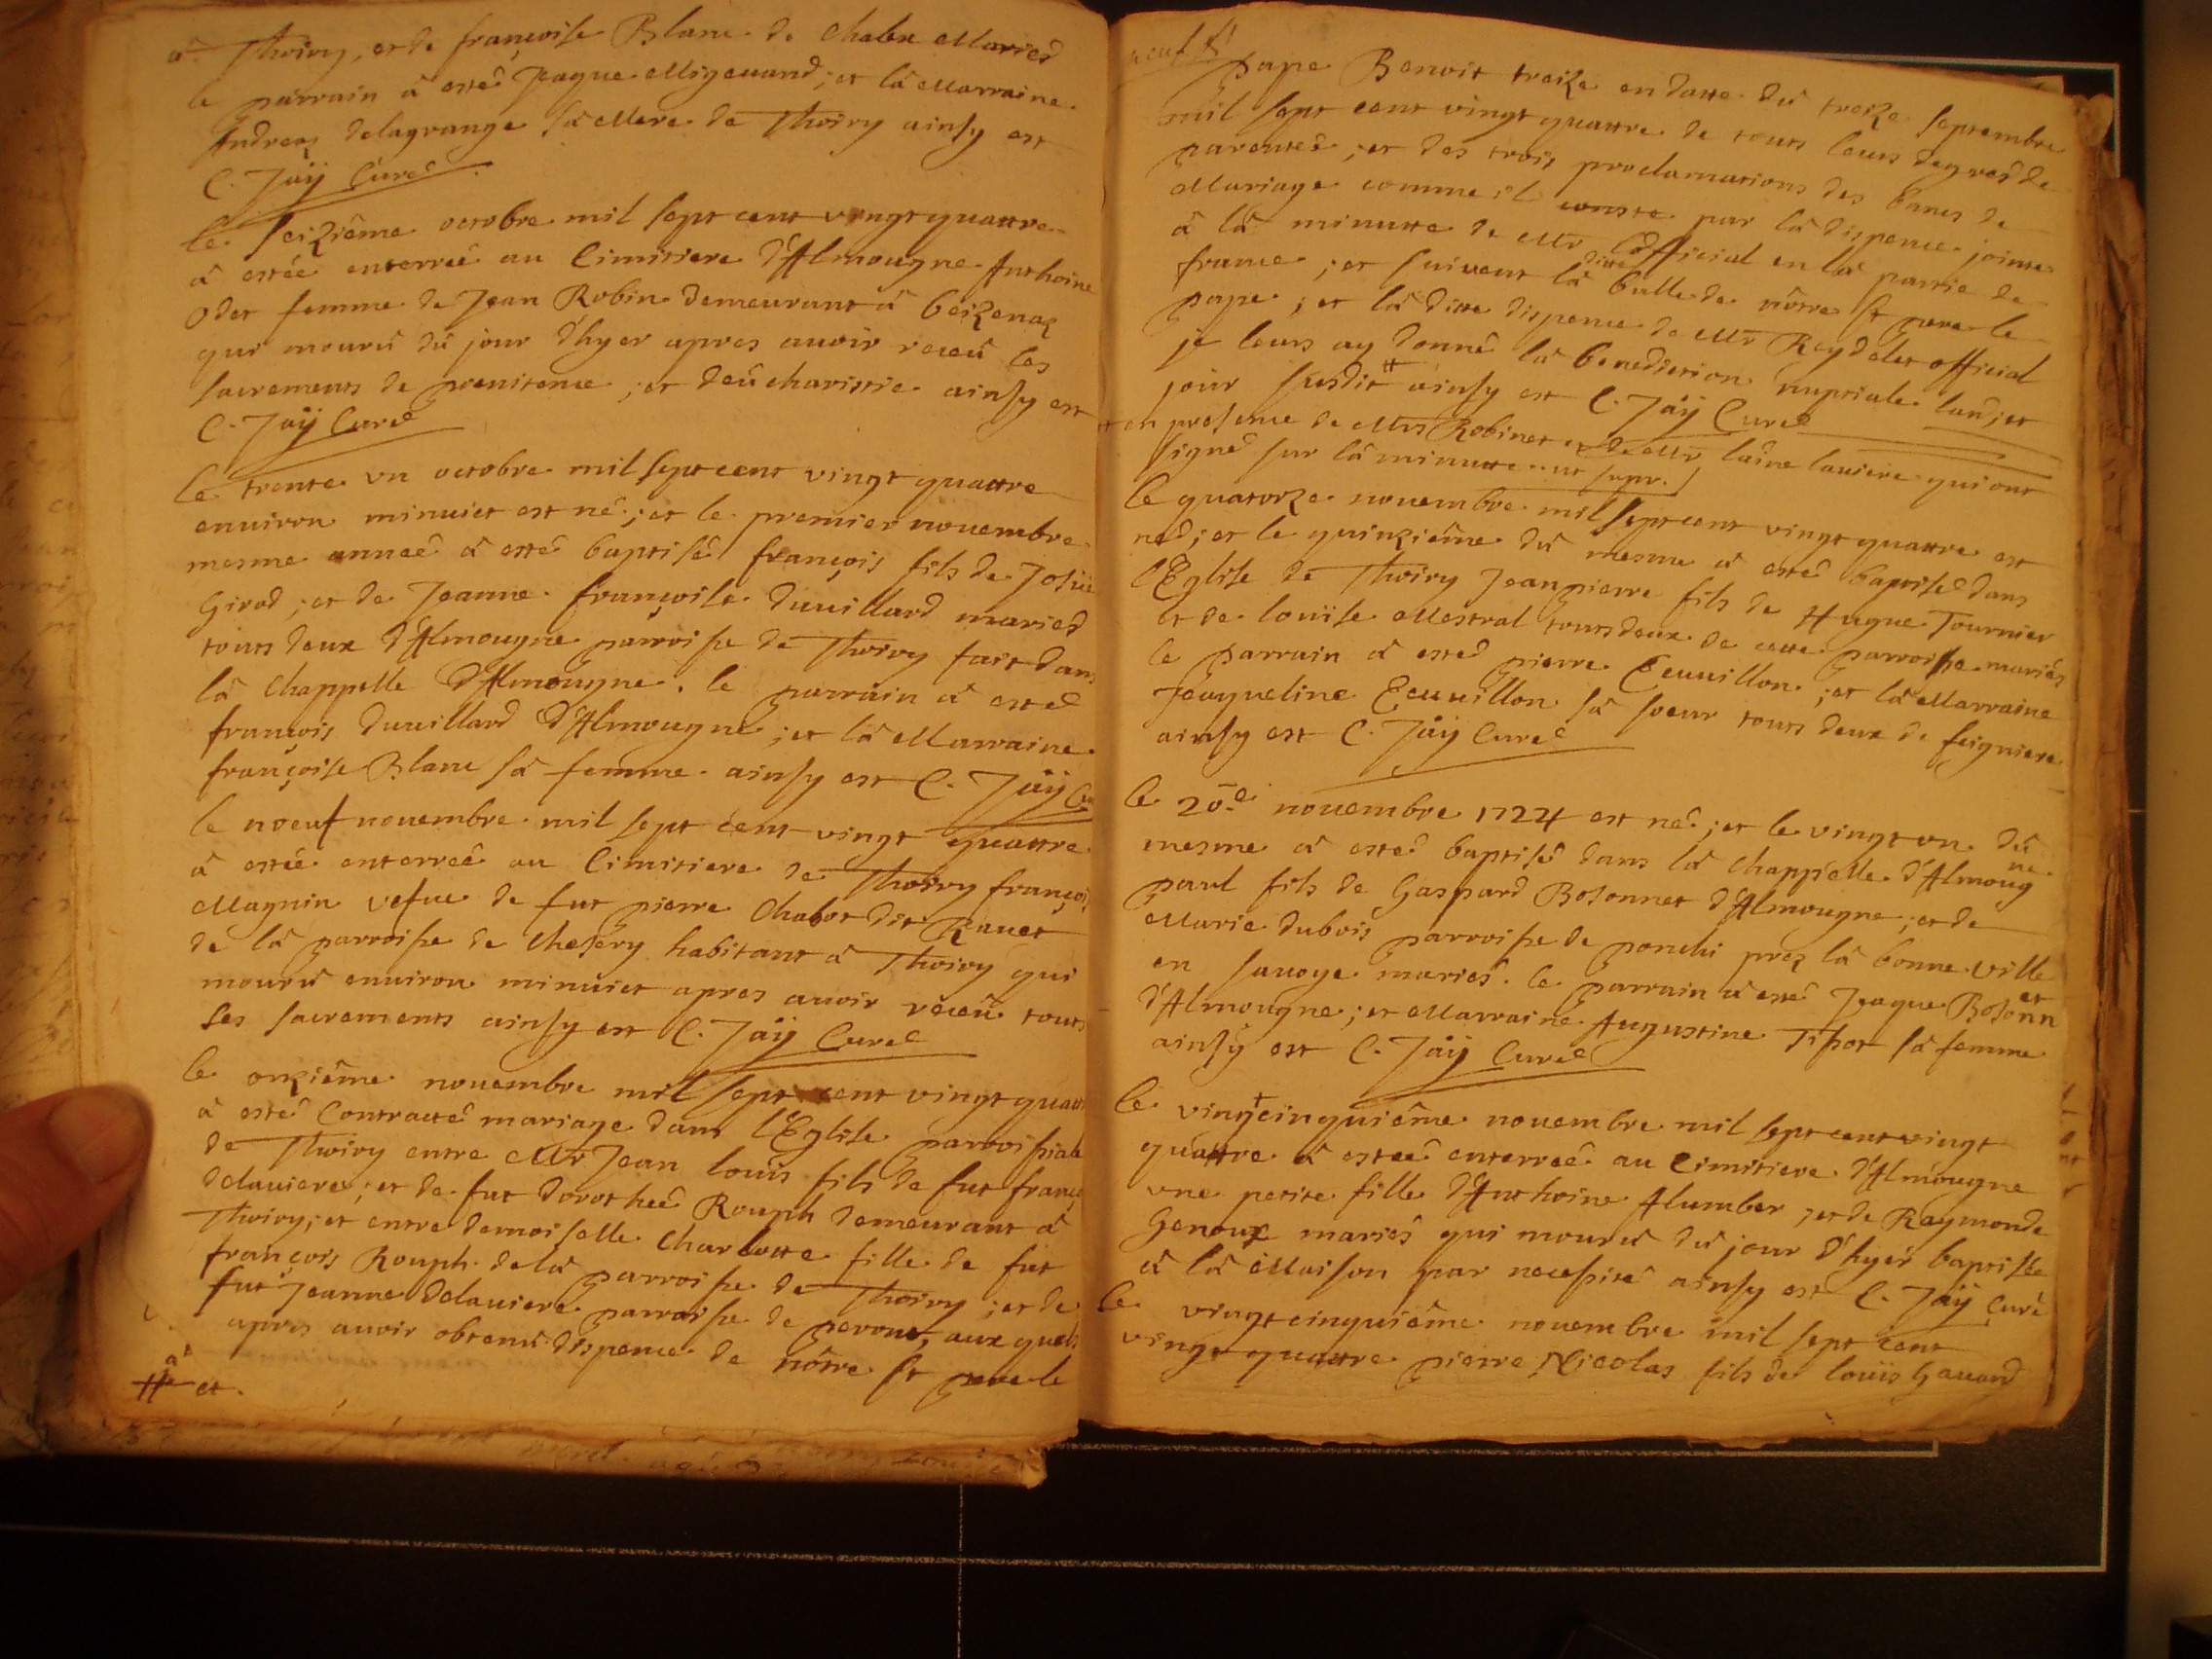 à Thoiry, et de françoise Blanc de Chabu Mariés
le parrain à esté Jaque Migeuand; et là Marraine
Andreaz delagrange sà Mere de Thoiry ainsy est
C. Jaÿ Curé
le seiziême octobre mil sept cent vingt quattre
à estée enterreé au Cimitiere d'Almougne Anthoine
Odet femme de Jean Robin demeurant à beizenaz
qui mourû dû jour d'hyer apres auoir receû les
sacrements de penitence; et deûcharistie ainsy est
C. Jaÿ Curé
le trente vn octobre mil sept cent vingt quattre
enuiron minuict est né; et le premier nouembre
mesme anneé à esté baptisé françois fils de Josüé
Girod; et de Jeanne françoise duuillard mariés
touts deux d'Almougne parroisse de Thoiry fait dans
là Chappelle d'Almougne. le parrain à esté
françois duuillard d'Almougne; et là Marraine
françoise Blanc sà femme ainsy est C. Jaÿ Cu
le noeuf nouembre mil sept cent vingt quattre
à estée enterreé au Cimitiere de Thoiry françoi
Magnin vefue de fut pierre Chabot dit Rauet
de là parroisse de Chesery habitant à Thoiry qui
mourû enuiron minuict apres auoir receû touts
ses sacrements ainsy est C. Jaÿ Curé
le onziême nouembre mil sept cent vingt quatt
à esté Contracté mariage dans l'Eglise parroissiale
de Thoiry entre Mr Jean louis fils de fut franç
delauiere; et de fut dorotheé Rouph demeurant à
Thoiry; et entre demoiselle Charlotte fille de fut
françois Rouph de là parroisse de Thoiry; et de
fut Jeanne delauiere parroisse de peront, aux quels
apres auoir obtenû dispence de nôtre St pere le
et
pape Benoit treize en datte dû treize septembre
mil sept cent vingt quattre de touts leurs degrés de
parenteé; et des trois proclamations des bancs de
Mariage comme il conste par là dispence jointe
à là minutte de Mr l'official en là partie de
france; et suiuent là ditte bulle de nôtre St pere le
pape; et là ditte dispence de Mr Reydelet official
je leurs ay donné là benediction nuptiale l'an; et
jour susdit # ainsy est C. Jaÿ Curé
# en presence de Mrs Robinet et de Mr laine lauiere qui ont
signé sur là minutte ut supr.
le quatorze nouembre mil sept cent vingt quattre est
né; et le quinziême dû mesme à esté baptisé dans
l'Eglise de Thoiry Jean pierre fils de Hugue Tournier
et de loüise Mestral touts deux de cette parroisse mariés
le parrain à esté pierre Ecuuillon; et là Marraine
Jaqueline Ecuuillon sà soeur touts deux de feigniere
ainsy est C. Jaÿ Curé
le 20e nouembre 1724 est né; et le vingt vn dû
mesme à esté baptisé dans là Chappelle d'Almougne
paul fils de Gaspard Bosonnet d'Almougne; et de
Marie dubois parroisse de ponchi prez là bonne ville
en sauoye mariés. le parrain à esté Jaque Bosonnet
d'Almougne; et Marraine Augustine Tissot sà femme
ainsy est C. Jaÿ Curé
le vingt cinquiême nouembre mil sept cent vingt
quattre à esteé enterreé au Cimitiere d'Almougne
vne petite fille d'Anthoine Alumber; et de Raymonde
Genoux mariés qui mourû dû jour d'hyer baptisée
à là Maison par necessité ainsy est C. Jaÿ Curé
le vingt cinquiême nouembre mil sept cent
vingt quattre pierre Nicolas fils de loüis Gauard